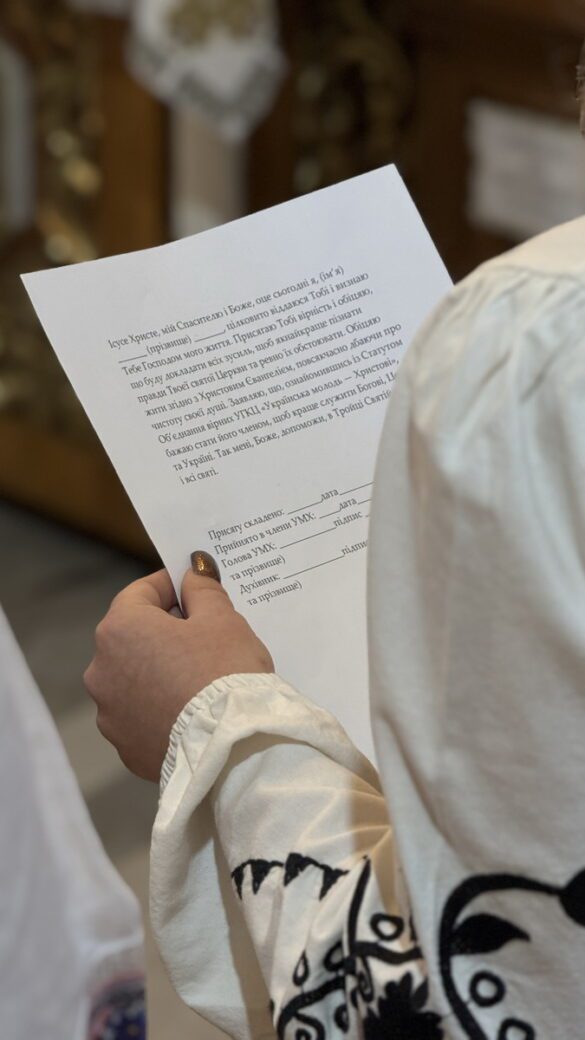 Ісусе Христе, мій Спасителю і Боже, оце сьогодні я, (ім'я)
______(прізвище) ______, цілковито віддаюся Тобі і визнаю
Тебе Господом мого життя. Присягаю Тобі вірність і обіцяю,
що буду докладати всіх зусиль, щоб якнайкраще пізнати
правди Твоєї святої Церкви та ревно їх обстоювати. Обіцяю
жити згідно з Христовим Євангелієм, повсякчасно дбаючи про
чистоту своєї душі. Заявляю, що, ознайомившись із Статутом
Об'єднання вірних УГКЦ «Українська молодь – Христові»,
бажаю стати його членом, щоб краще служити Богові,
та Україні. Так мені, Боже, допоможи, в Тройці Святій
і всі святі.
Присягу складено: ______дата______
Прийнято в члени УМХ: ____дата____
Голова УМХ: __________ підпис
та прізвище)
Духівник: ___________ підпис
та прізвище)